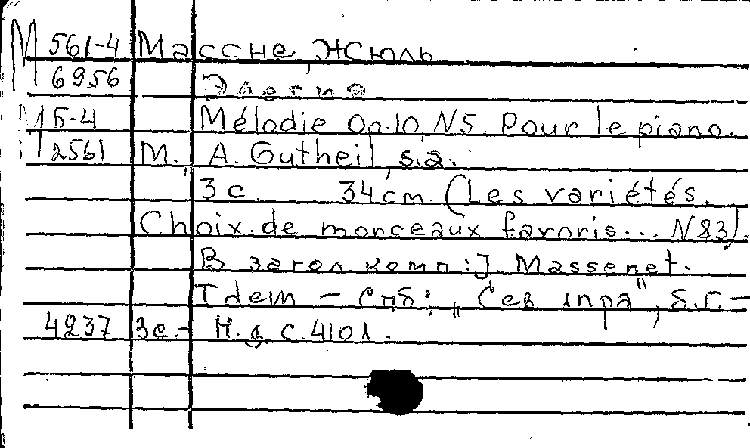 М 561-4 Массне, Жюль
6956 Элегия
М Б-4 Mélodie Op.10, N5. Pour le piano.
2561 М., A. Gutheil, s.a.
3 с. 34 cm. (Les variétés.
Choix de morceaux favoris... N 83).
В загол. комп.: J. Massenet.
Idem — Спб., „Сев. лира", б.г. —
4237 3с. — Н.д. С.410л.